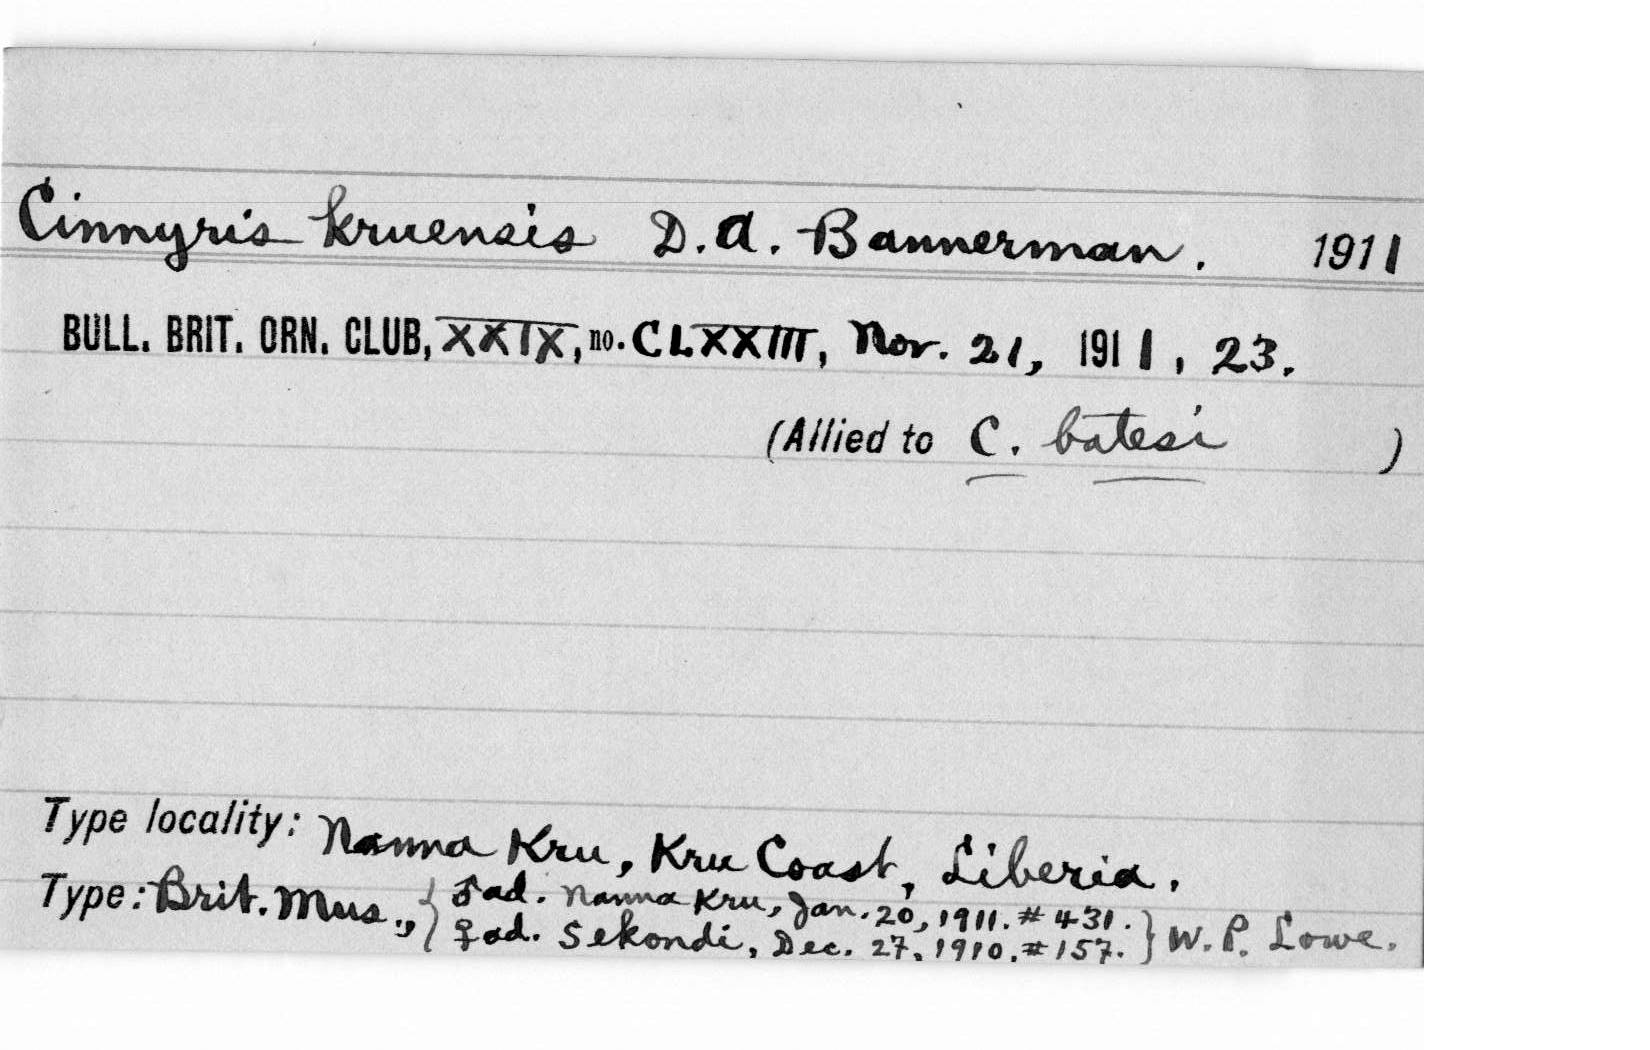 Cinnyris kruensis D. A. Bannerman. 1911
BULL. BRIT. ORN. CLUB, XXIX, no. CLXXIII, Nov. 21, 1911, 23.
(Allied to C. batesi )
Type locality: Nanna Kru, Kru Coast, Liberia.
Type: Brit. Mus., { ♂ ad. Nanna Kru, Jan. 20, 1911. # 431.
♀ ad. Sekondi, Dec. 27, 1910. # 157. } W. P. Lowe.